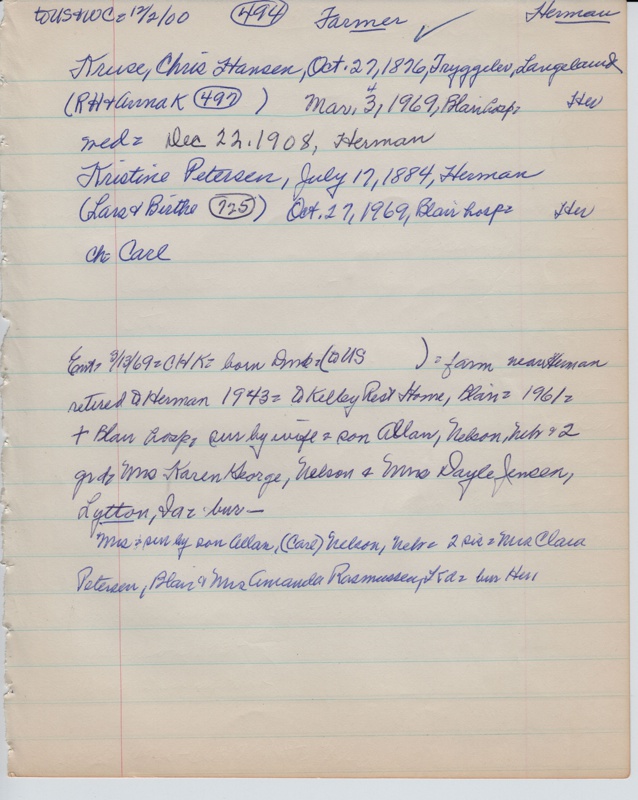 to US + WC = 12/2/00 494 Farmer ✓ Herman
Kruse, Chris Hansen, Oct. 27, 1876, Tryggelev, Langeland
(RH + Anna K 497) Mar. 4 3, 1969, Blair hosp = Her
med = Dec 22. 1908, Herman
Kristine Petersen, July 17, 1884, Herman
(Lars & Birthe 725) Oct. 27, 1969, Blair hosp = Her
ch = Carl
Ent = 3/13/69 = CHK = born Dmk = (to US ) = farm near Herman
retired to Herman 1943 = to Kelby Rest Home, Blair = 1961 =
+ Blair hosp, sur by wife = son Allan, Nelson, Nebr & 2
grd = Mrs Karen George, Nelson & Mrs Dayle Jensen,
Lytton, Ia = bur —
Mrs = sur by son Allan, (Carl) Nelson, Nebr = 2 sis = Mrs Clara
Petersen, Blair & Mrs Amanda Rasmussen, = bur Her,